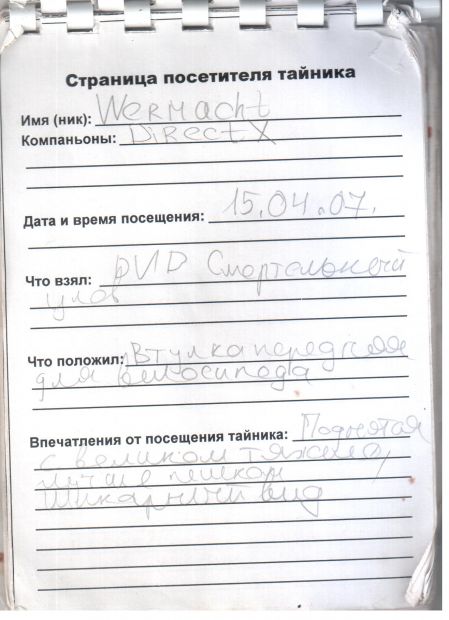 Страница посетителя тайника
Имя (ник): Wermacht
Компаньоны: DiRectX
Дата и время посещения: 15.04.07.
Что взял: DVD Смортельный
улов
Что положил: Втулка передняя
для велосипода
Впечатления от посещения тайника: Поднятся
с великом тяжело,
лучше пешком
Шикарный вид